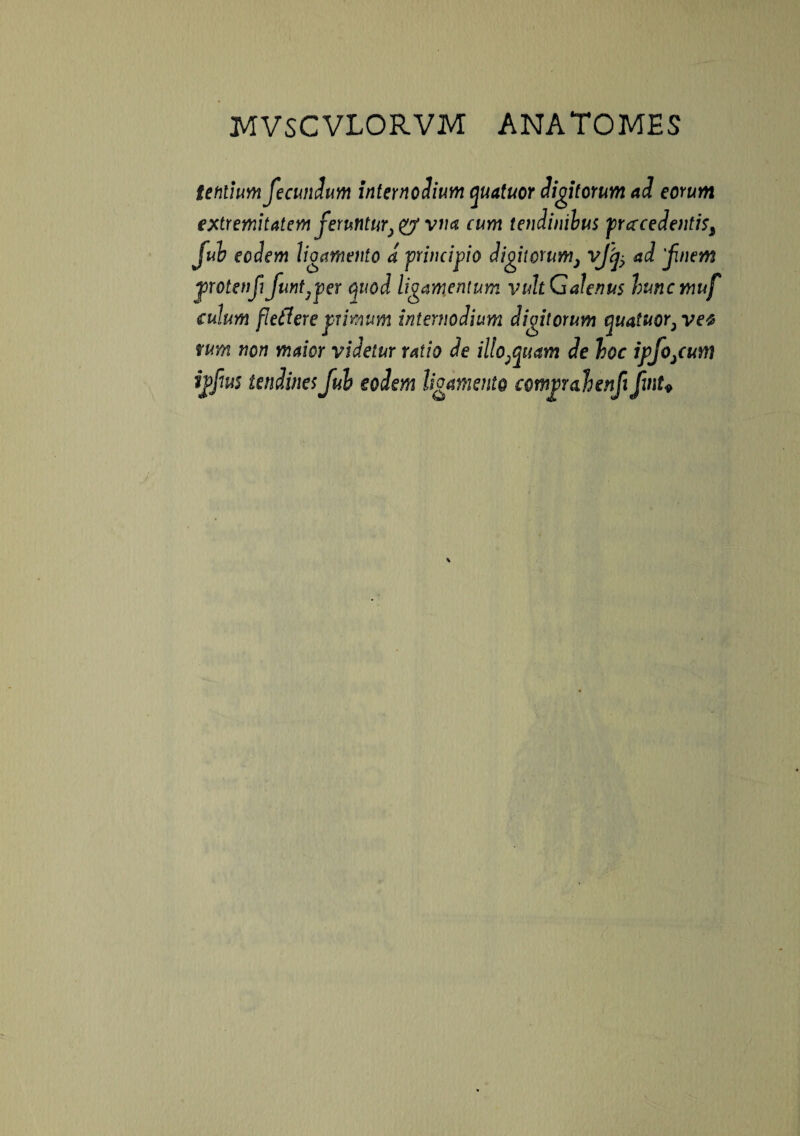 MVSCVLORVM ANATOMES
tentium ſecundum internodium quatuor digitorum ad eorum
extremitatem feruntur, & vna cum tendinibus præcedentis,
ſub eodem ligamento à principio digitorum, vſq; ad finem
protenſi ſunt, per quod ligamentum vult Galenus hunc muſ
culum flectere primum internodium digitorum quatuor, ve⸗
rum non maior videtur ratio de illo, quam de hoc ipſo, cum
ipſius tendines ſub eodem ligamento comprahenſi ſint.